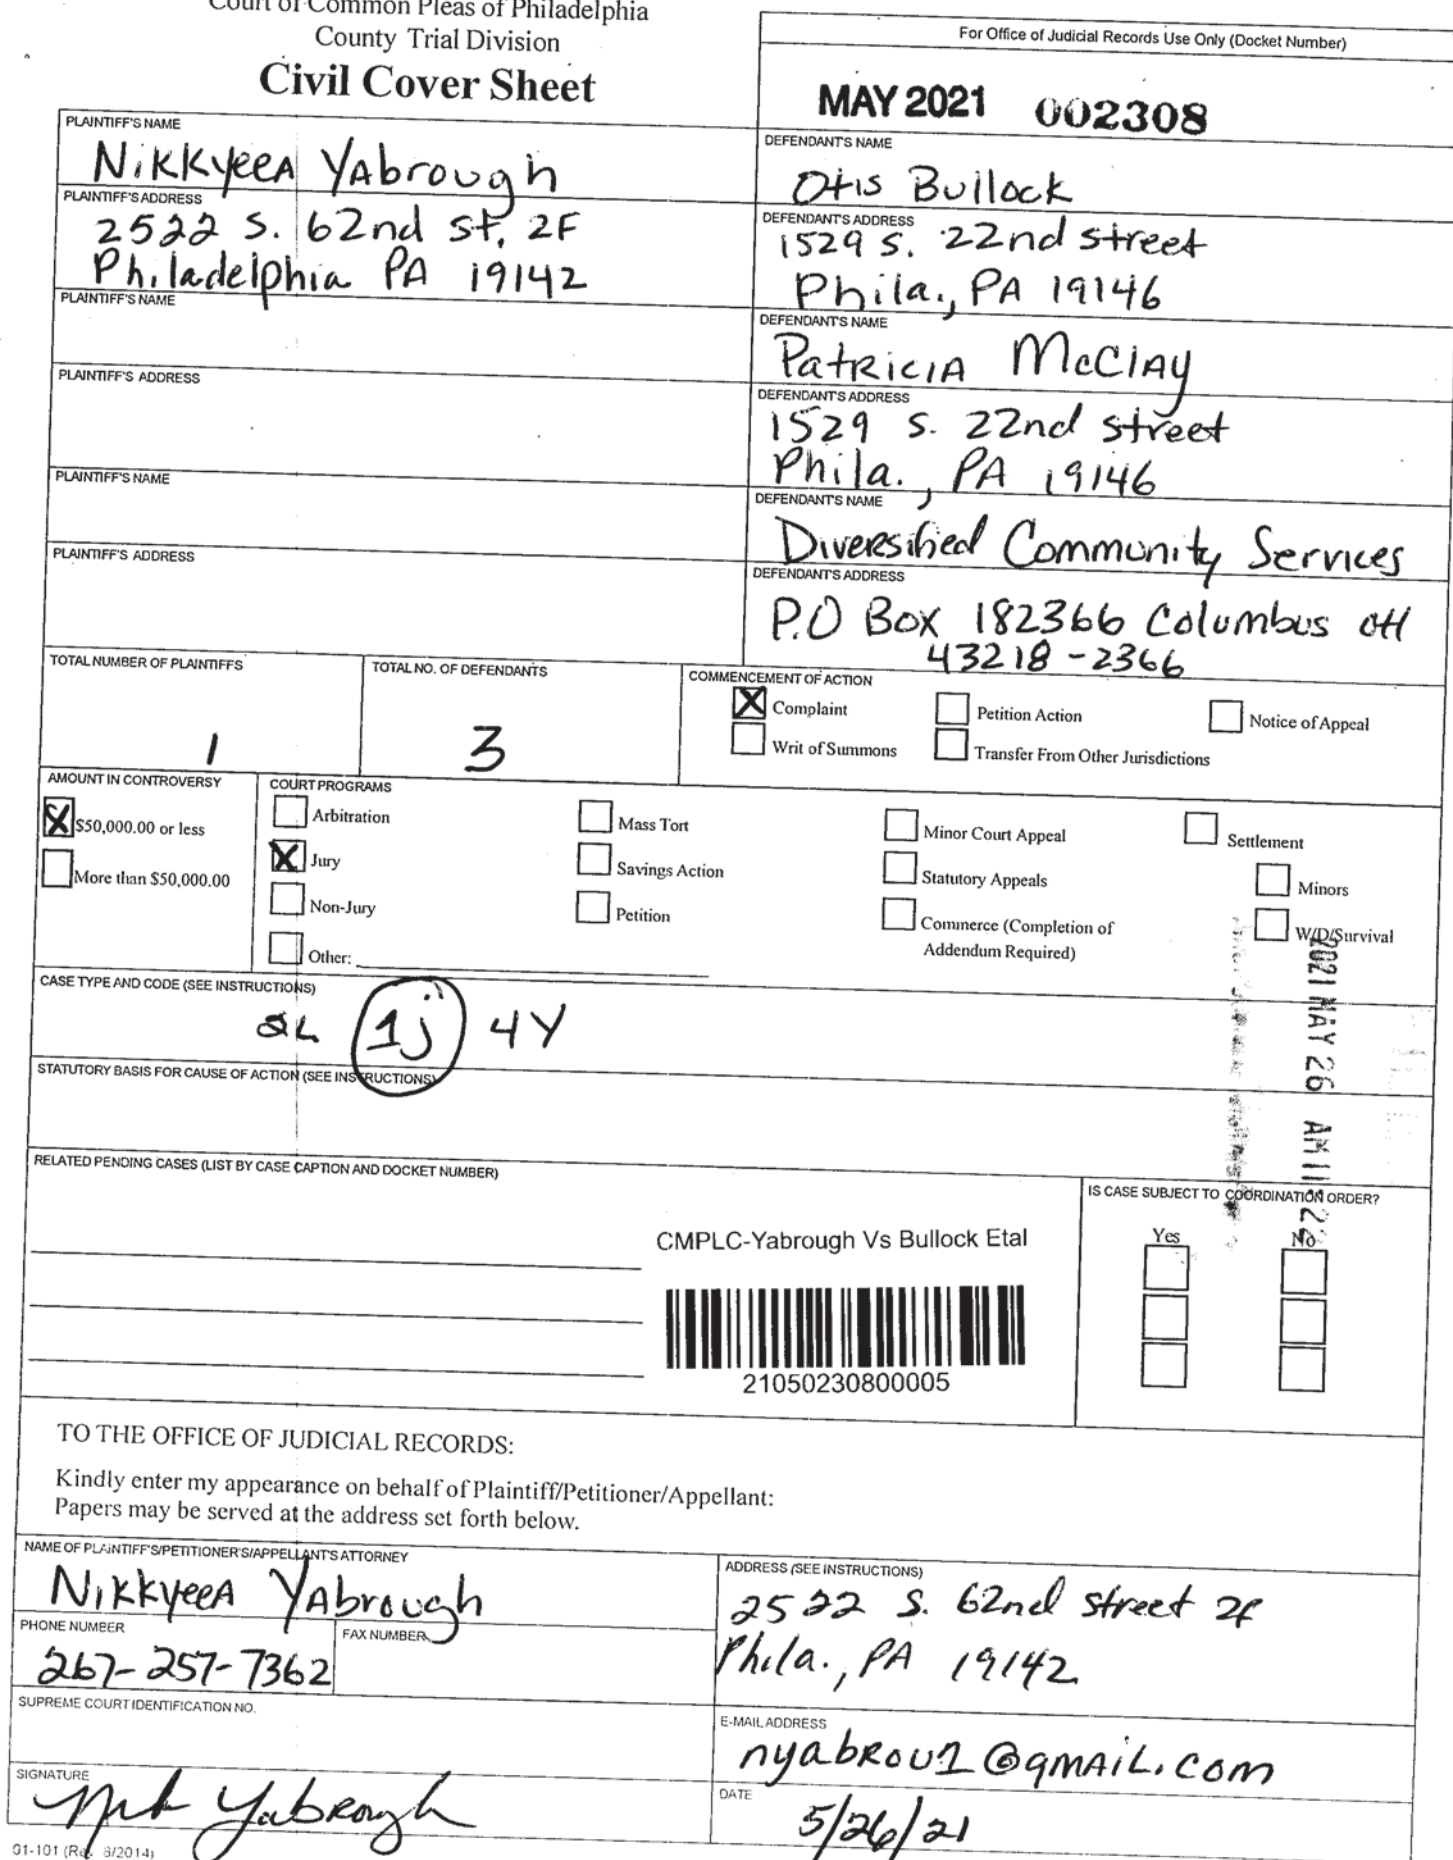 Court of Common Pleas of Philadelphia
County Trial Division
Civil Cover Sheet
For Office of Judicial Records Use Only (Docket Number)
MAY 2021 002308
PLAINTIFF'S NAME
Nikkyeea Yabrough
DEFENDANT'S NAME
Otis Bullock
PLAINTIFF'S ADDRESS
2522 S. 62nd st, 2F
Philadelphia PA 19142
DEFENDANT'S ADDRESS
1529 S. 22nd street
Phila., PA 19146
PLAINTIFF'S NAME
DEFENDANT'S NAME
Patricia McClay
PLAINTIFF'S ADDRESS
DEFENDANT'S ADDRESS
1529 S. 22nd street
Phila., PA 19146
PLAINTIFF'S NAME
DEFENDANT'S NAME
Diversified Community Services
PLAINTIFF'S ADDRESS
DEFENDANT'S ADDRESS
P.O Box 182366 Columbus OH
43218-2366
TOTAL NUMBER OF PLAINTIFFS
1
TOTAL NO. OF DEFENDANTS
3
COMMENCEMENT OF ACTION
X Complaint
Petition Action
Notice of Appeal
Writ of Summons
Transfer From Other Jurisdictions
AMOUNT IN CONTROVERSY
X $50,000.00 or less
More than $50,000.00
COURT PROGRAMS
Arbitration
X Jury
Non-Jury
Other:
Mass Tort
Savings Action
Petition
Minor Court Appeal
Statutory Appeals
Commerce (Completion of
Addendum Required)
Settlement
Minors
W/D/Survival
CASE TYPE AND CODE (SEE INSTRUCTIONS)
1j 4Y
2021 MAY 26 AM 11:22
STATUTORY BASIS FOR CAUSE OF ACTION (SEE INSTRUCTIONS)
RELATED PENDING CASES (LIST BY CASE CAPTION AND DOCKET NUMBER)
IS CASE SUBJECT TO COORDINATION ORDER?
Yes No
CMPLC-Yabrough Vs Bullock Etal
21050230800005
TO THE OFFICE OF JUDICIAL RECORDS:
Kindly enter my appearance on behalf of Plaintiff/Petitioner/Appellant:
Papers may be served at the address set forth below.
NAME OF PLAINTIFF'S/PETITIONER'S/APPELLANT'S ATTORNEY
Nikkyeea Yabrough
ADDRESS (SEE INSTRUCTIONS)
2522 S. 62nd street 2f
Phila., PA 19142
PHONE NUMBER
267-257-7362
FAX NUMBER
SUPREME COURT IDENTIFICATION NO.
E-MAIL ADDRESS
nyabrou1@gmail.com
SIGNATURE
Yabrough
DATE
5/26/21
01-101 (Rev. 8/2014)